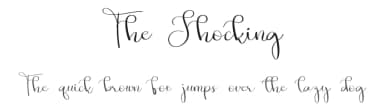 The Shocking
The quick brown fox jumps over the lazy dog